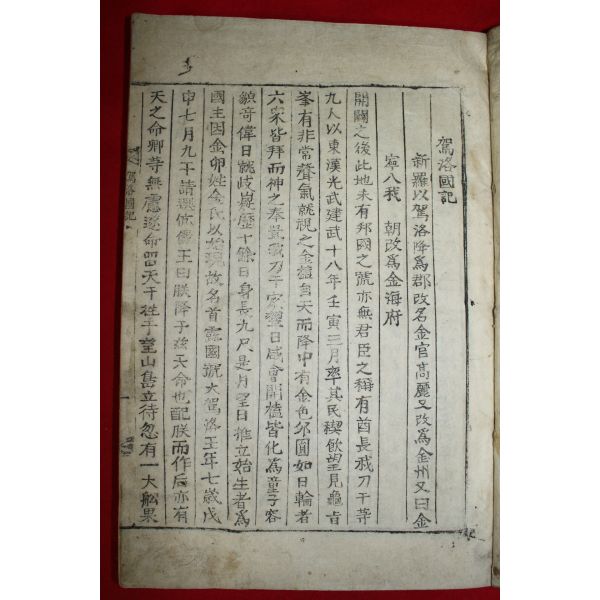 駕洛國記
新羅以駕洛降爲郡改名金官高麗又改爲金州又曰金
寧入我　朝改爲金海府
開闢之後此地未有邦國之號亦無君臣之稱有酋長我刀干等
九人以東漢光武建武十八年壬寅三月率其民禊飮望見龜旨
峯有非常聲氣就視之金榼自天而降中有金色卵圓如日輪者
六衆皆拜而神之奉置我刀干家翌日咸會開榼皆化爲童子容
貌奇偉日就岐嶷歷十餘日身長九尺是月望日推立始生者爲
國主因金卵姓金氏以始現故名首露國號大駕洛王年七歲戊
申七月九干請選伉儷王曰朕降于玆天命也配朕而作后亦有
天之命卿等無慮遂命留天干往于望山島立待忽有一大船果
駕洛國記